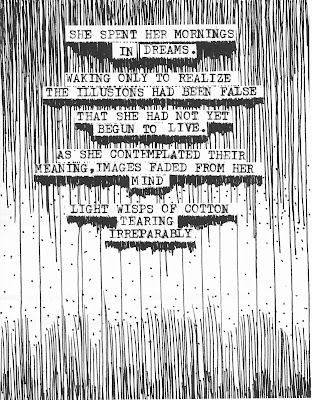 SHE SPENT HER MORNINGS
IN DREAMS.
WAKING ONLY TO REALIZE
THE ILLUSIONS HAD BEEN FALSE
THAT SHE HAD NOT YET
BEGUN TO LIVE.
AS SHE CONTEMPLATED THEIR
MEANING, IMAGES FADED FROM HER
MIND
LIGHT WISPS OF COTTON
TEARING
IRREPARABLY